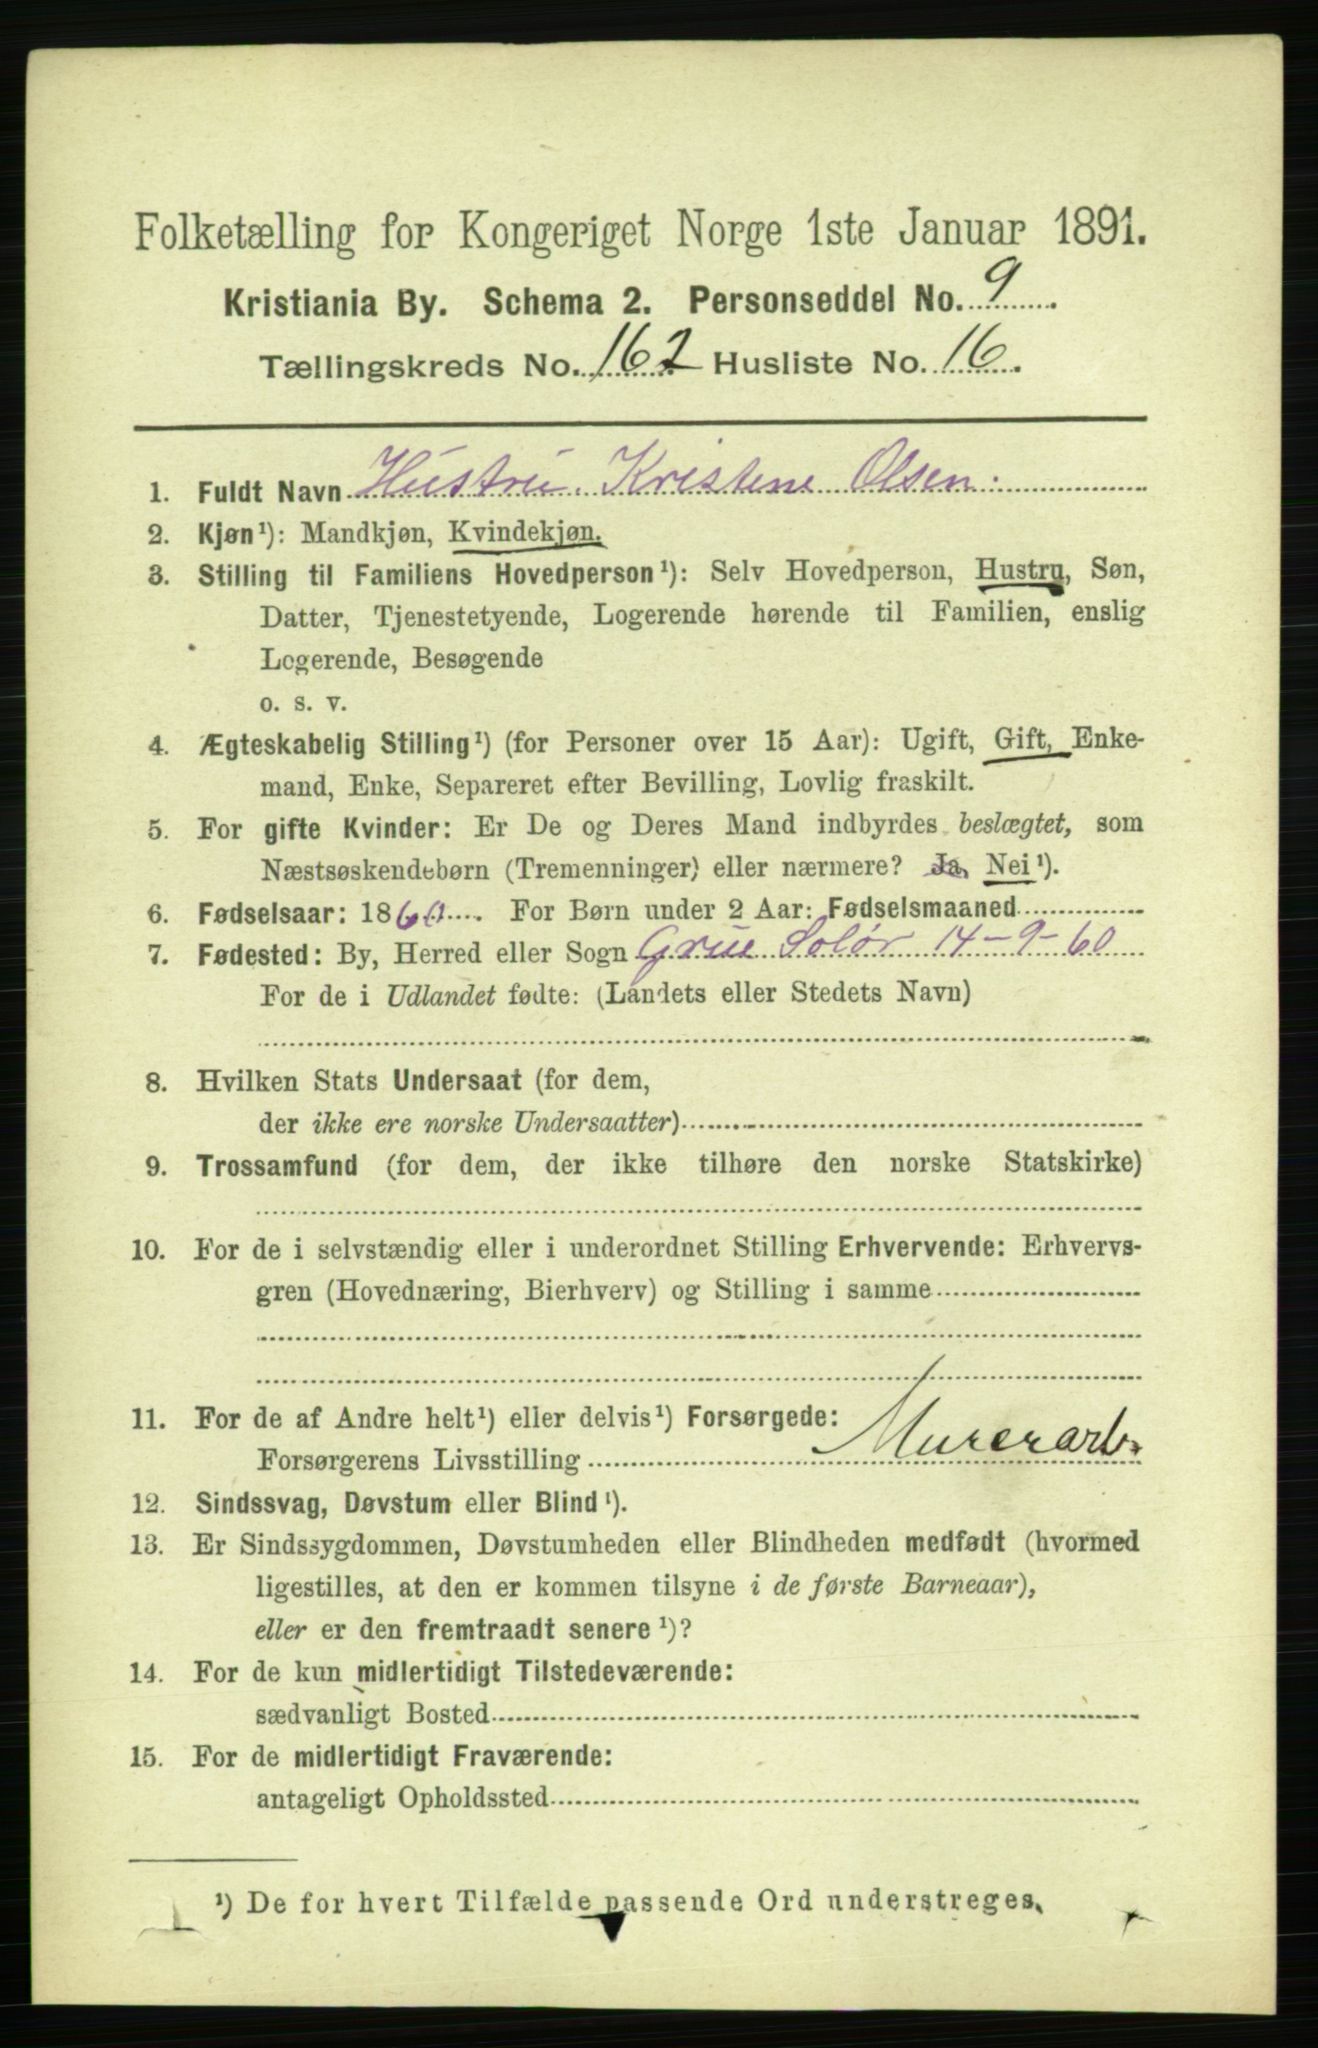 Folketælling for Kongeriget Norge 1ste Januar 1891.
Kristiania By. Schema 2. Personseddel No. 9
Tællingskreds No. 162 Husliste No. 16.
1. Fuldt Navn Hustru. Kristene Olsen.
2. Kjøn¹): Mandkjøn, Kvindekjøn.
3. Stilling til Familiens Hovedperson¹): Selv Hovedperson, Hustru, Søn,
Datter, Tjenestetyende, Logerende hørende til Familien, enslig
Logerende, Besøgende
o. s. v.
4. Ægteskabelig Stilling¹) (for Personer over 15 Aar): Ugift, Gift, Enke-
mand, Enke, Separeret efter Bevilling, Lovlig fraskilt.
5. For gifte Kvinder: Er De og Deres Mand indbyrdes beslægtet, som
Næstsøskendebørn (Tremenninger) eller nærmere? Ja, Nei¹).
6. Fødselsaar: 1860. For Børn under 2 Aar: Fødselsmaaned
7. Fødested: By, Herred eller Sogn Grue Solør 14-9-60
For de i Udlandet fødte: (Landets eller Stedets Navn)
8. Hvilken Stats Undersaat (for dem,
der ikke ere norske Undersaatter)
9. Trossamfund (for dem, der ikke tilhøre den norske Statskirke)
10. For de i selvstændig eller i underordnet Stilling Erhvervende: Erhvervs-
gren (Hovednæring, Bierhverv) og Stilling i samme
11. For de af Andre helt¹) eller delvis¹) Forsørgede:
Forsørgerens Livsstilling Murerarb.
12. Sindssvag, Døvstum eller Blind¹).
13. Er Sindssygdommen, Døvstumheden eller Blindheden medfødt (hvormed
ligestilles, at den er kommen tilsyne i de første Barneaar),
eller er den fremtraadt senere¹)?
14. For de kun midlertidigt Tilstedeværende:
sædvanligt Bosted
15. For de midlertidigt Fraværende:
antageligt Opholdssted
¹) De for hvert Tilfælde passende Ord understreges.